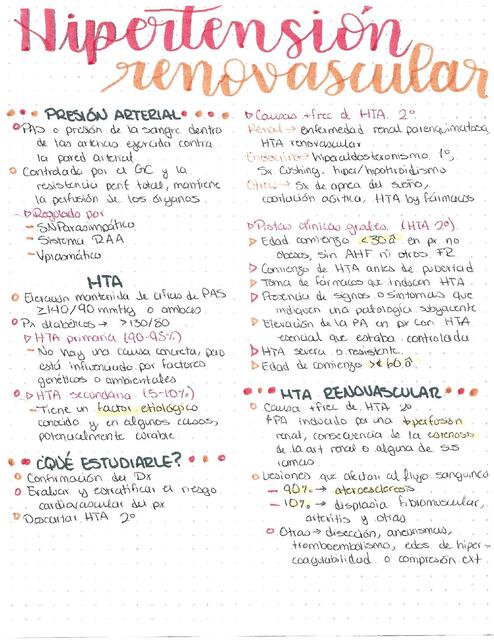 Hipertensión
renovascular
PRESIÓN ARTERIAL
PAS o presión de la sangre dentro
de las arterias ejercida contra
la pared arterial
Controlada por el GC y la
resistencia perif total, mantiene
la perfusión de los órganos.
Regulado por
- SNParasimpático
- Sistema RAA
- Vía
HTA
Elevación mantenida de cifras de PAS
≥140/90 mmHg o ambas
Px diabéticos → >130/80
HTA primaria (90-95%)
- No hay una causa concreta, pero
está influenciado por factores
genéticos o ambientales
HTA secundaria (5-10%)
- Tiene un factor etiológico
conocido y en algunos casos,
potencialmente curable
¿QUÉ ESTUDIARLE?
Confirmación del Dx
Evaluar y estratificar el riesgo
cardiovascular del px
Descartar HTA 2º
Causas +frec d HTA 2º
Renal → enfermedad renal parenquimatosa,
HTA renovascular
Endocrino → hiperaldosteronismo 1º,
Sx Cushing, hiper/hipotiroidismo
Otros → Sx de apnea del sueño,
coartación aórtica, HTA by fármacos
Pistas clínicas grales. (HTA 2º)
Edad comienzo <30a en px no
obesos, sin AHF ni otros FR
Comienzo de HTA antes de pubertad
Toma de fármacos que inducen HTA
Presencia de signos o síntomas que
indiquen una patología subyacente
Elevación de la PA en px con HTA
esencial que estaba controlada
HTA severa o resistente
Edad de comienzo >60a
HTA RENOVASCULAR
Causa +frec de HTA 2º
↑PA inducido por una hipoperfusión
renal, consecuencia de la estenosis
de la art renal o alguna de sus
ramas
Lesiones que afectan al flujo sanguíneo
- 90% → ateroesclerosis
- 10% → displasia fibromuscular,
arteritis y otras
Otras → disección, aneurismas,
tromboembolismo, edos de hiper-
coagulabilidad o compresión ext.